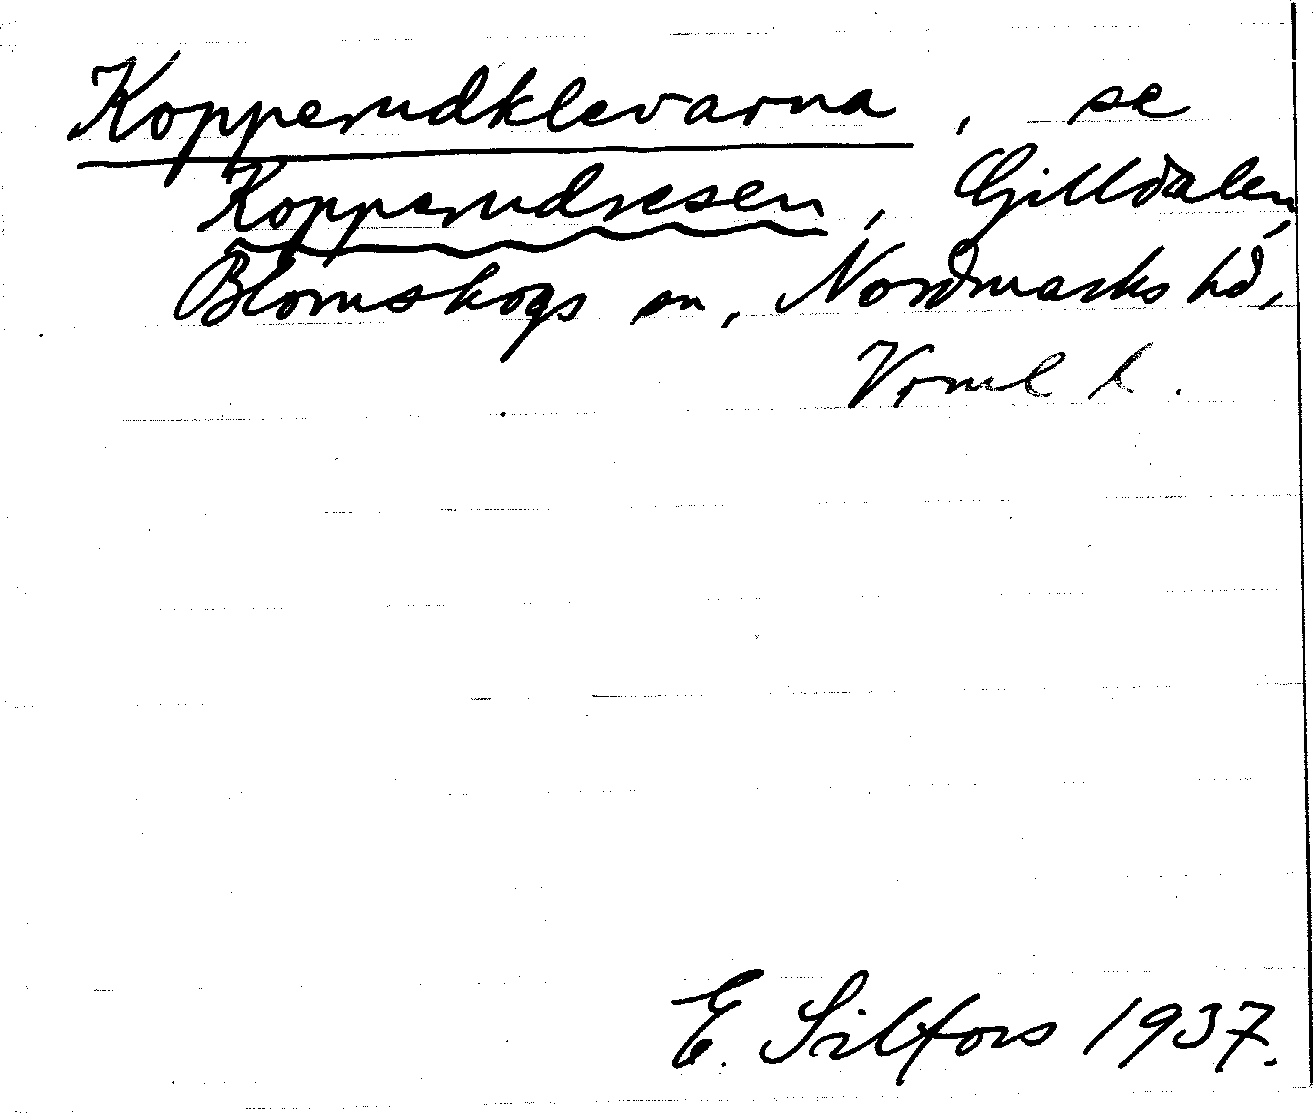 Kopperudklevarna, se
Kopperudresen, Gilldalen,
Blomskogs sn, Nordmarks hd,
Vrml l.
E. Silfors 1937.